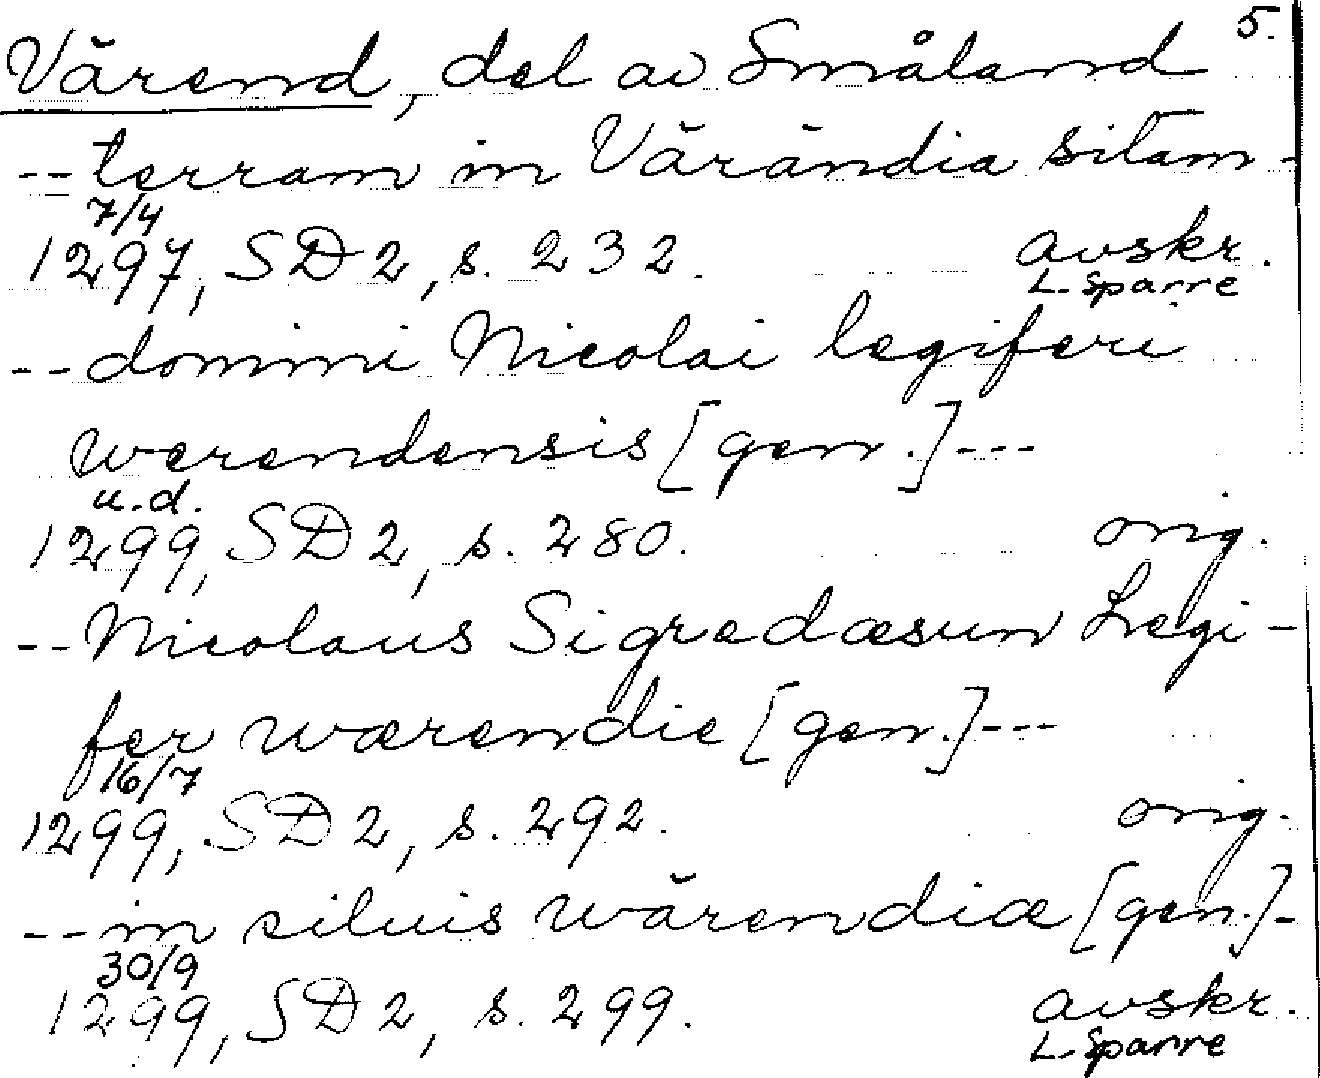 5.
Värend, del av Småland
--terram in Värändia sitam-
7/4
1297, SD 2, s. 232. avskr.
L. Sparre
--domini Nicolai legiferi
werendensis [gen.]---
u.d.
1299, SD 2, s. 280. orig.
--Nicolaus Sigredæsun Legi-
fer wærendie [gen.]---
16/7
1299, SD 2, s. 292. orig.
--in siluis wärendiæ [gen.]-
30/9
1299, SD 2, s. 299. avskr.
L. Sparre